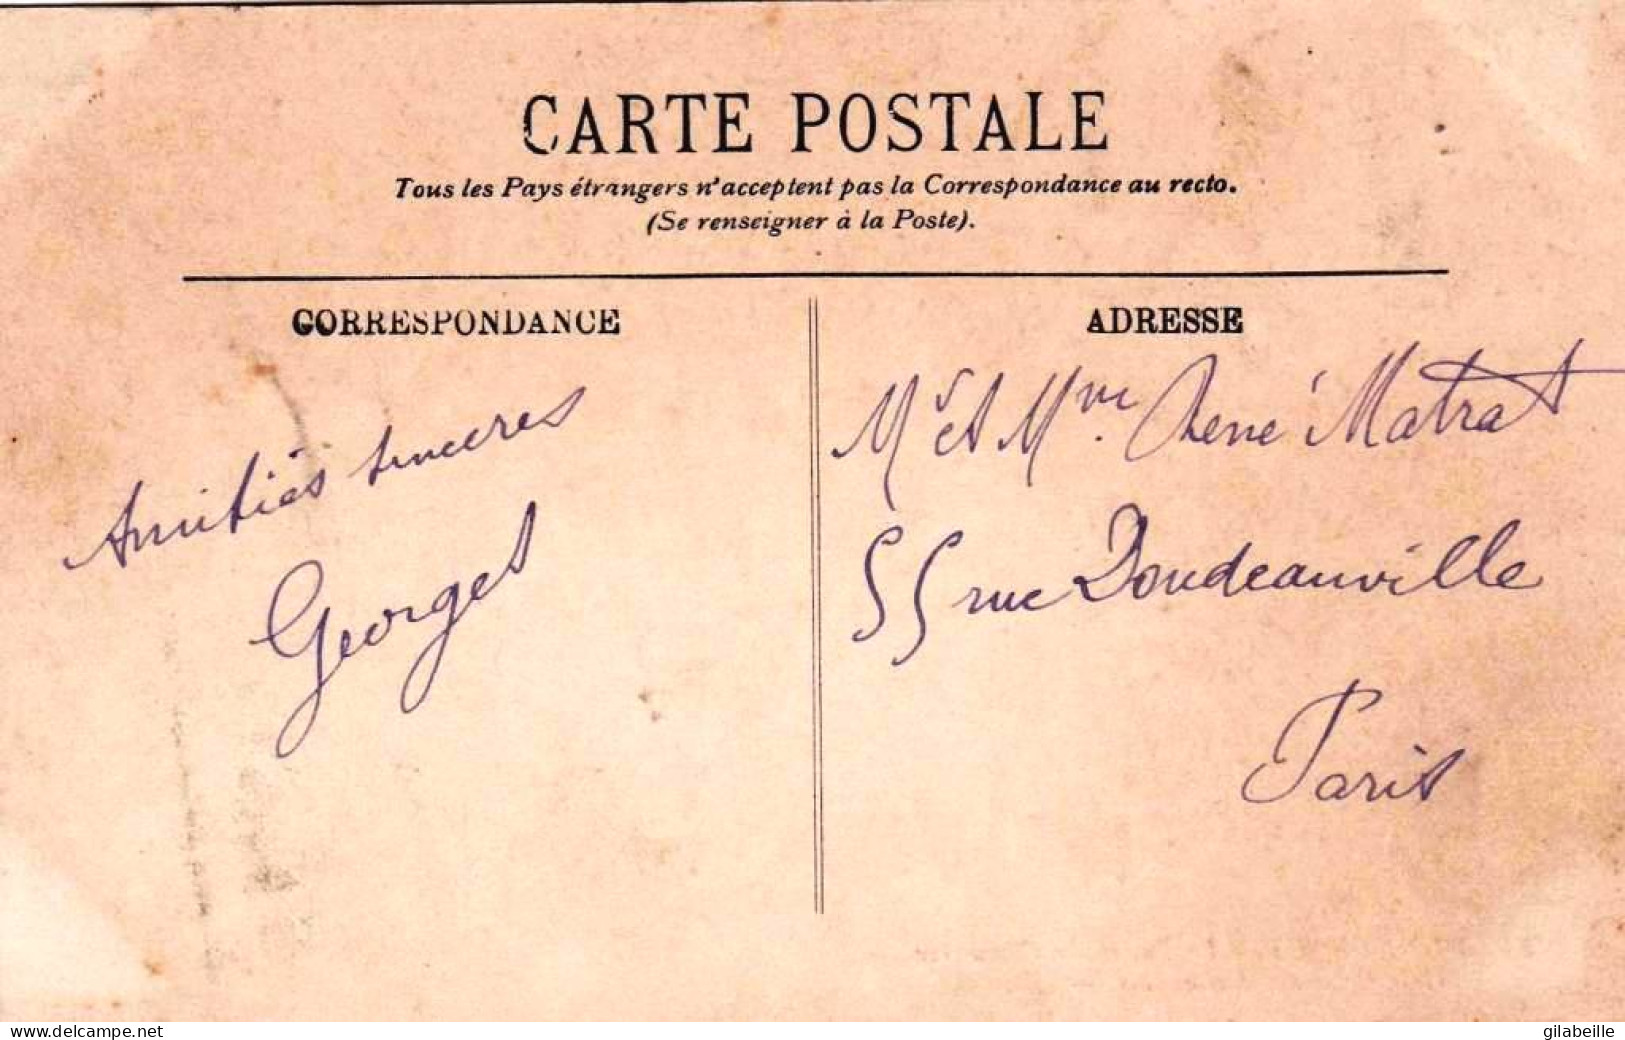 CARTE POSTALE
Tous les Pays étrangers n'acceptent pas la Correspondance au recto.
(Se renseigner à la Poste).
CORRESPONDANCE
Amitiés sinceres
Georges
ADRESSE
Mr et Mme René Matrat
55 rue Doudeauville
Paris
www.delcampe.net
gilabeille